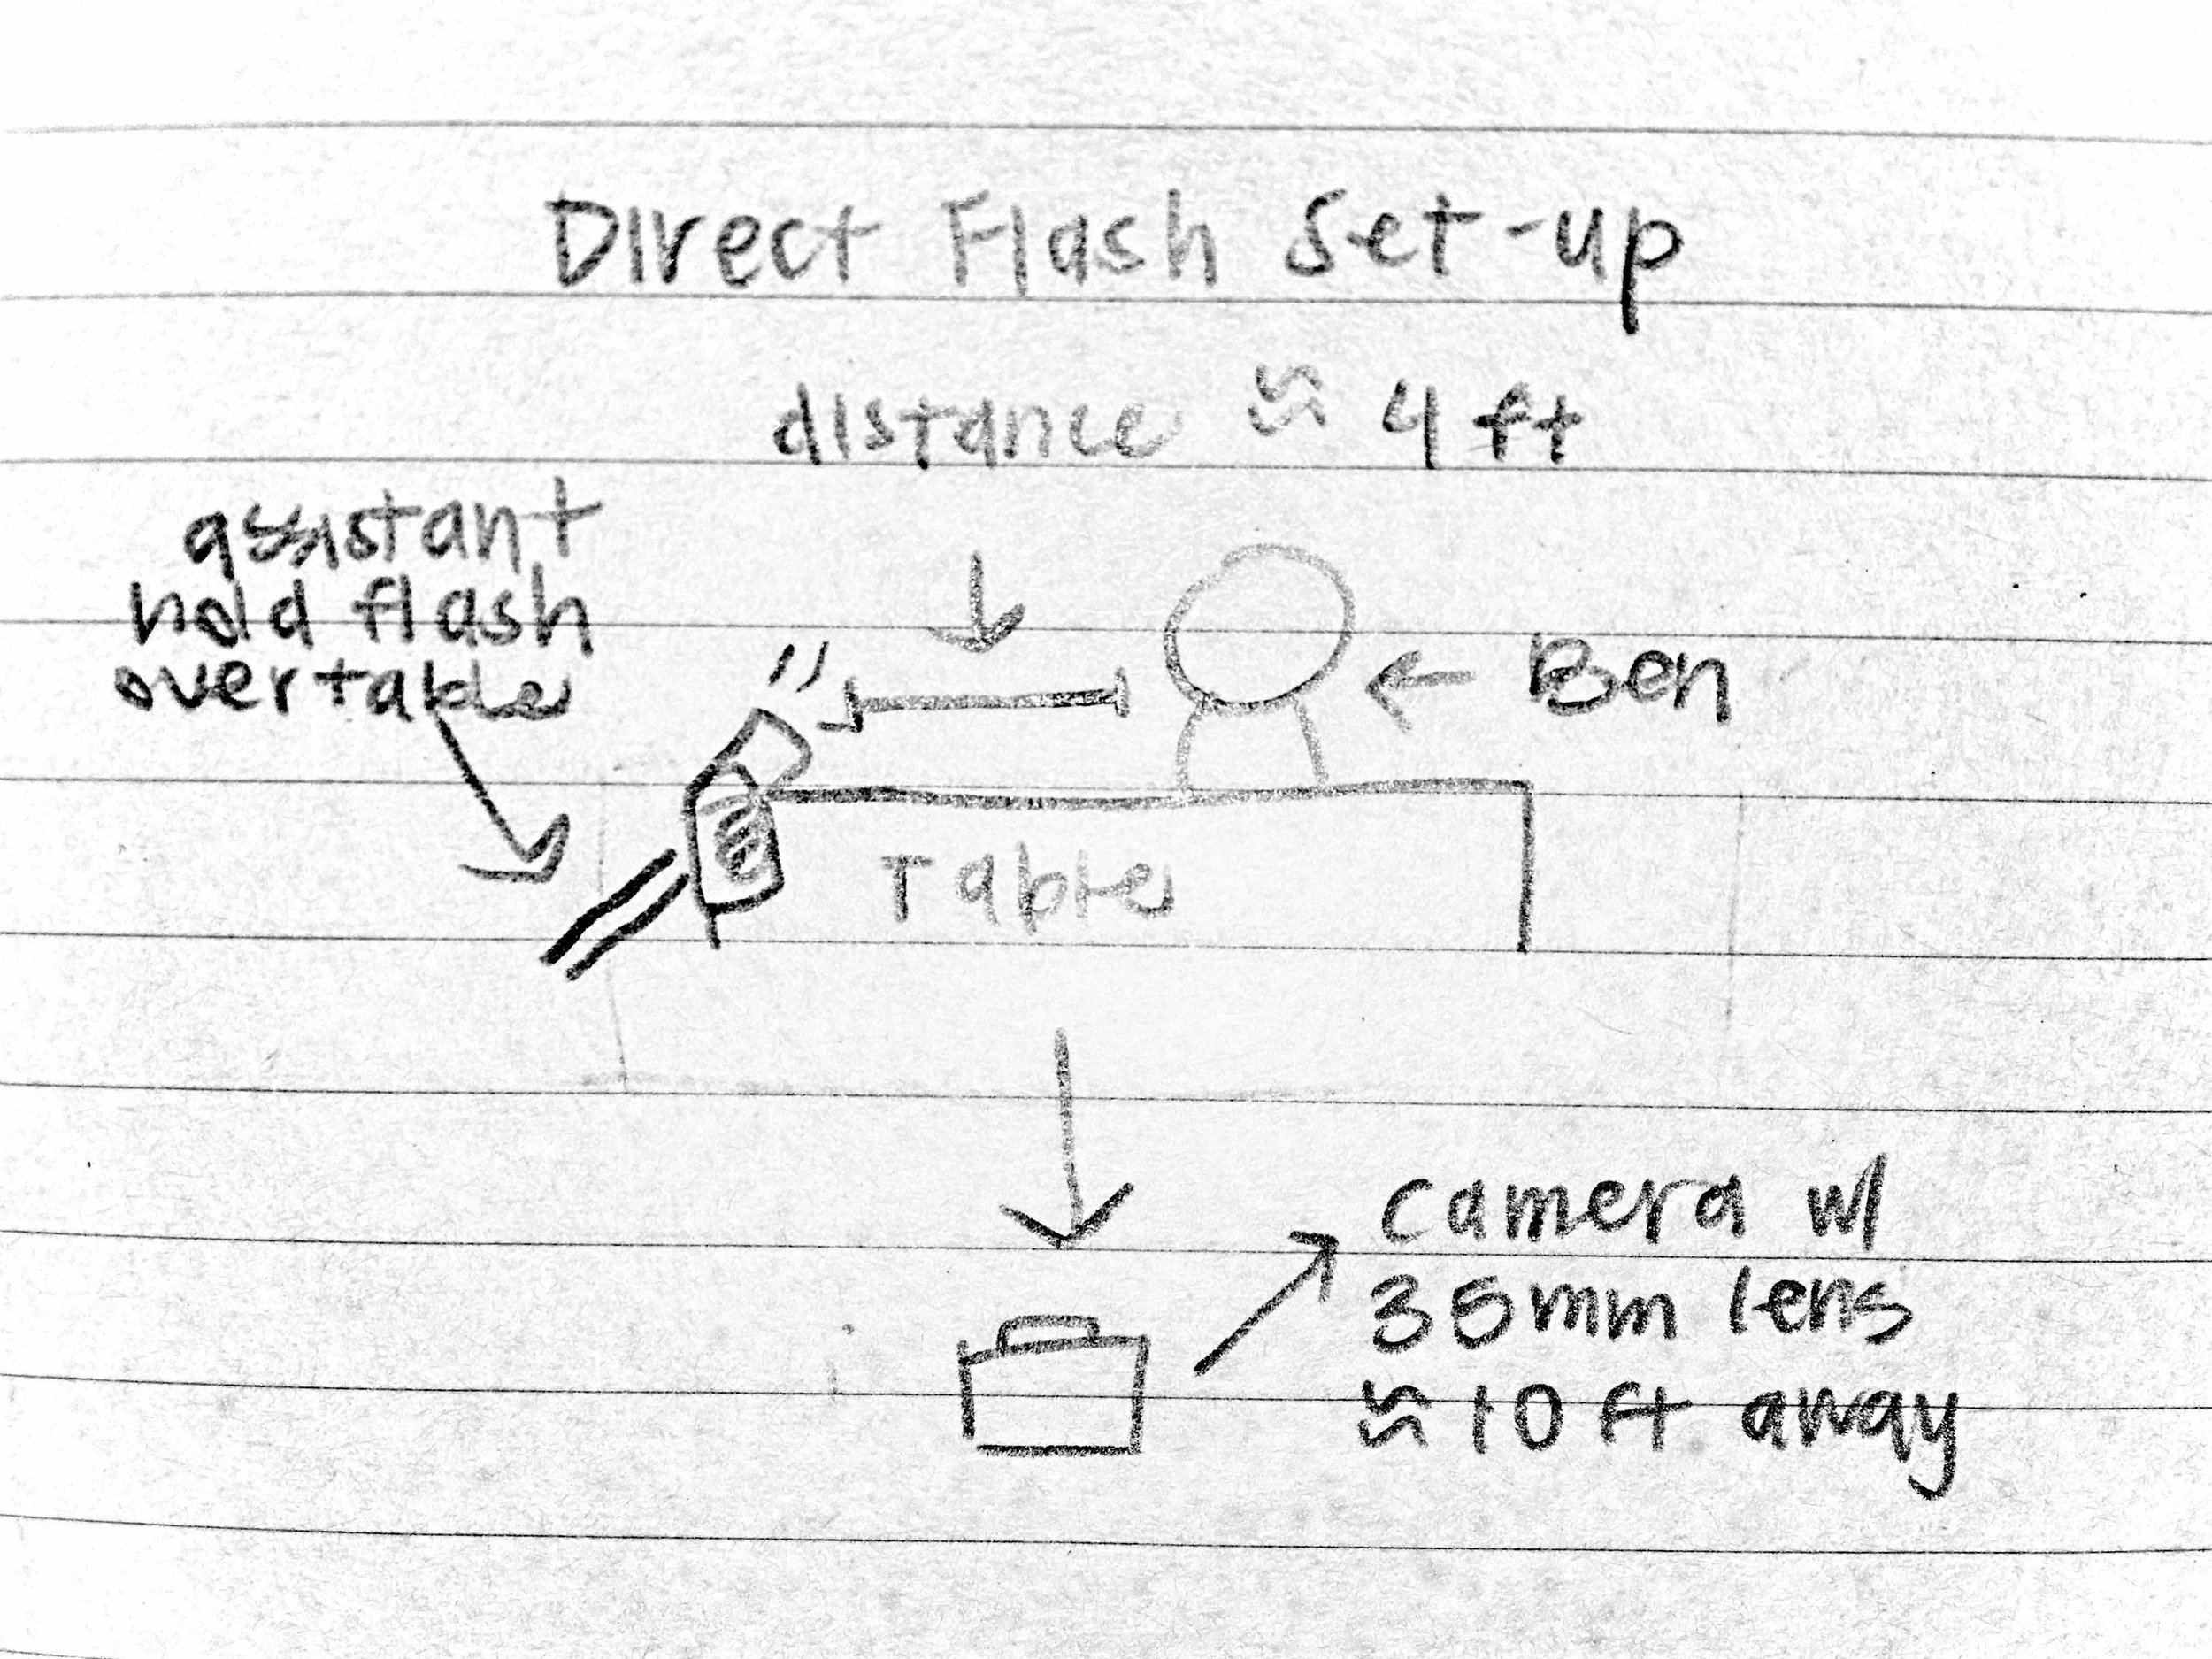 Direct Flash Set-up
distance ≈ 4 ft
assistant
hold flash
over table
Ben
Table
camera w/
35mm lens
≈ 10 ft away